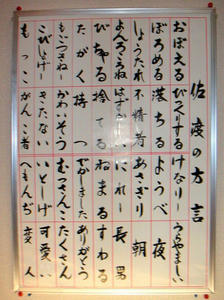 佐渡の方言
おぼえる びっくりする けなりー うらやましい
ぼろめる 落ちる ようべ 夜
しょうたれ 不精者 あさぎり 朝
はずかしい 長男
びちゃる 捨てる ねまる すわる
たがく 持つ でかしました ありがとう
かわいそう むっさんこ たくさん
こびしょげー きたない いとしげ 可愛い
もっこ がんこ者 へもんぢ 変人